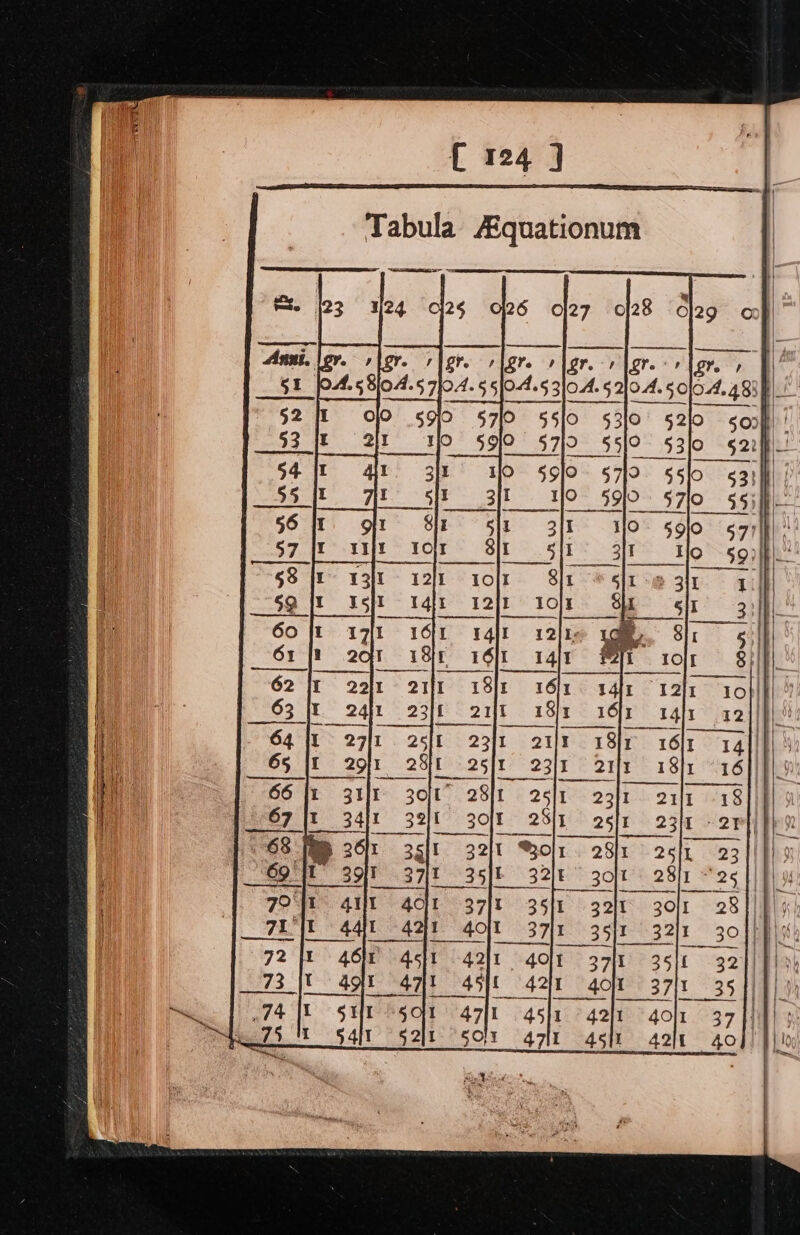 [ 124 ]
Tabula Æquationum
23 1|24 0|25 0|26 0|27 0|28 0|29 0
Anni. |gr. ′|gr. ′|gr. ′|gr. ′|gr. ′|gr. ′|gr. ′
51 |0A.58|0A.57|0A.55|0A.53|0A.52|0A.50|0A.48
52 |1 0|0 59|0 57|0 55|0 53|0 52|0 50
53 |1 2|1 1|0 59|0 57|0 55|0 53|0 52
54 |1 4|1 3|1 1|0 59|0 57|0 55|0 53
55 |1 7|1 5|1 3|1 1|0 59|0 57|0 55
56 |1 9|1 8|1 5|1 3|1 1|0 59|0 57
57 |1 11|1 10|1 8|1 5|1 3|1 1|0 59
58 |1 13|1 12|1 10|1 8|1 5|1 3|1 1
59 |1 15|1 14|1 12|1 10|1 8|1 5|1 3
60 |1 17|1 16|1 14|1 12|1 10|1 8|1 5
61 |1 20|1 18|1 16|1 14|1 12|1 10|1 8
62 |1 22|1 21|1 18|1 16|1 14|1 12|1 10
63 |1 24|1 23|1 21|1 18|1 16|1 14|1 12
64 |1 27|1 25|1 23|1 21|1 18|1 16|1 14
65 |1 29|1 28|1 25|1 23|1 21|1 18|1 16
66 |1 31|1 30|1 28|1 25|1 23|1 21|1 18
67 |1 34|1 32|1 30|1 28|1 25|1 23|1 21
68 | 36|1 35|1 32|1 30|1 28|1 25|1 23
69 |1 39|1 37|1 35|1 32|1 30|1 28|1 25
70 |1 41|1 40|1 37|1 35|1 32|1 30|1 28
71 |1 44|1 42|1 40|1 37|1 35|1 32|1 30
72 |1 46|1 45|1 42|1 40|1 37|1 35|1 32
73 |1 49|1 47|1 45|1 42|1 40|1 37|1 35
74 |1 51|1 50|1 47|1 45|1 42|1 40|1 37
75 |1 54|1 52|1 50|1 47|1 45|1 42|1 40